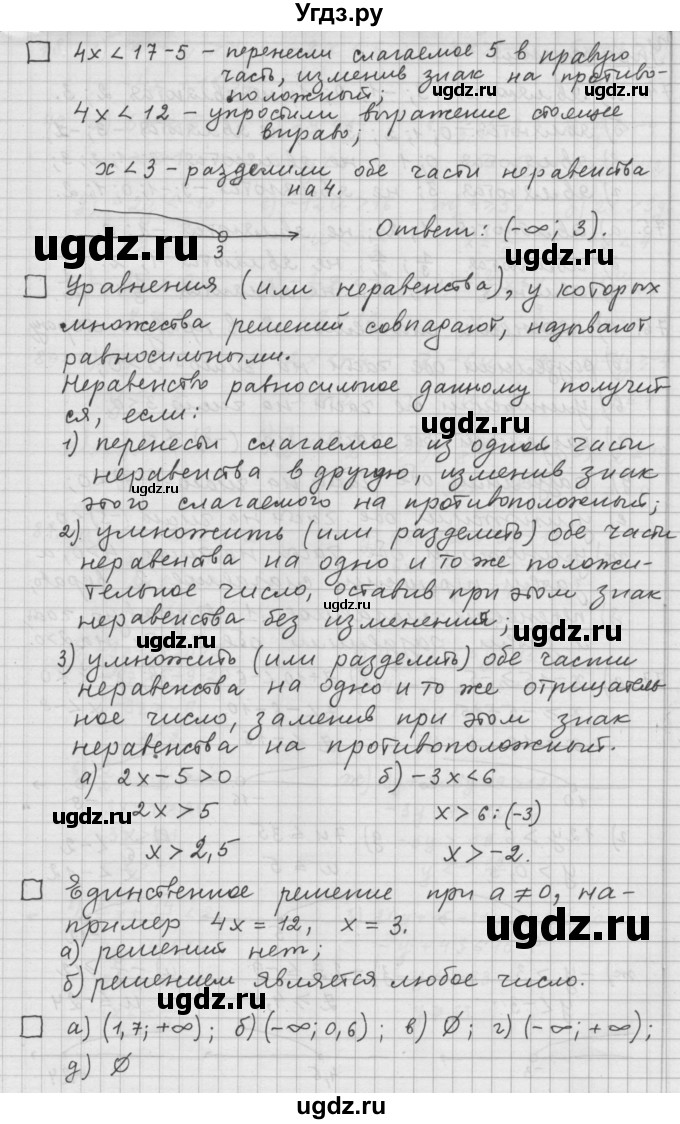 Угдз.ру
4x < 17 - 5 - перенесли слагаемое 5 в правую
часть, изменив знак на противо-
положный;
4x < 12 - упростили выражение стоящее
вправо;
x < 3 - разделили обе части неравенства
на 4.
3
Ответ: (-∞; 3).
ugdz.ru
ugdz.ru
Уравнения (или неравенства), у которых
множества решений совпадают, называют
ugdz.ru
равносильными.
Неравенство равносильное данному получит-
ся, если:
ugdz.ru
1) перенести слагаемое из одной части
неравенства в другую, изменив знак
ugdz.ru
этого слагаемого на противоположный;
2) умножить (или разделить) обе части
неравенства на одно и то же положи-
тельное число, оставив при этом знак
ugdz.ru
неравенства без изменений;
ugdz.ru
3) умножить (или разделить) обе части
неравенства на одно и то же отрицатель-
ное число, заменив при этом знак
неравенства на противоположный.
а) 2x - 5 > 0 б) -3x < 6
ugdz.ru
2x > 5 x > 6 : (-3)
x > 2,5 x > -2.
Единственное решение при a ≠ 0, на-
пример 4x = 12, x = 3.
ugdz.ru
а) решений нет;
б) решением является любое число.
ugdz.ru
а) (1,7; +∞); б) (-∞; 0,6); в) Ø; г) (-∞; +∞);
д) Ø
ugdz.ru
ugdz.ru